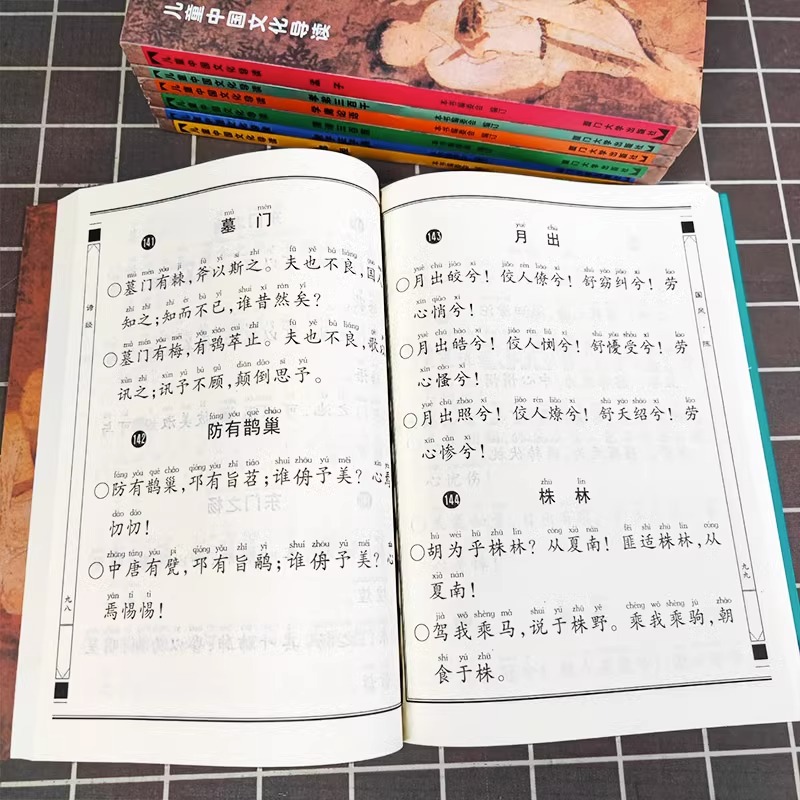 儿童中国文化导读
儿童中国文化导读 孟子 本书编委会 编订 厦门大学出版社
儿童中国文化导读 孝弟三百千 本书编委会 编订 厦门大学出版社
儿童中国文化导读 学庸论语 本书编委会 编订 厦门大学出版社
诗经
九八
mù mén
141 墓门
mù mén yǒu jí fǔ yǐ sī zhī fū yě bù liáng
○墓门有棘，斧以斯之。夫也不良，国人
zhī zhī zhī ér bù yǐ shuí xī rán yǐ
知之；知而不已，谁昔然矣？
mù mén yǒu méi yǒu xiāo cuì zhǐ fū yě bù liáng
○墓门有梅，有鸮萃止。夫也不良，歌以
xùn zhī xùn yú bù gù diān dǎo sī yú
讯之；讯予不顾，颠倒思予。
fáng yǒu què cháo
142 防有鹊巢
fáng yǒu què cháo qióng yǒu zhǐ tiáo shuí zhōu yú měi
○防有鹊巢，邛有旨苕；谁侜予美？心焉
dāo dāo
忉忉！
zhōng táng yǒu pì qióng yǒu zhǐ yì shuí zhōu yú měi
○中唐有甓，邛有旨鹝；谁侜予美？心
yān tì tì
焉惕惕！
国风·陈
九九
yuè chū
143 月出
yuè chū jiǎo xī jiǎo rén liáo xī shū yǎo jiǎo xī láo
○月出皎兮！佼人僚兮！舒窈纠兮！劳
xīn qiǎo xī
心悄兮！
yuè chū hào xī jiǎo rén liǔ xī shū yōu shòu xī láo
○月出皓兮！佼人懰兮！舒慢受兮！劳
xīn cǎo xī
心慅兮！
yuè chū zhào xī jiǎo rén liáo xī shū yāo shào xī láo
○月出照兮！佼人燎兮！舒夭绍兮！劳
xīn cǎn xī
心惨兮！
zhū lín
144 株林
hú wèi hū zhū lín cóng xià nán fěi shì zhū lín cóng
○胡为乎株林？从夏南！匪适株林，从
xià nán
夏南！
jià wǒ shèng mǎ shuì yú zhū yě chéng wǒ shèng jū zhāo
○驾我乘马，说于株野。乘我乘驹，朝
shí yú zhū
食于株。